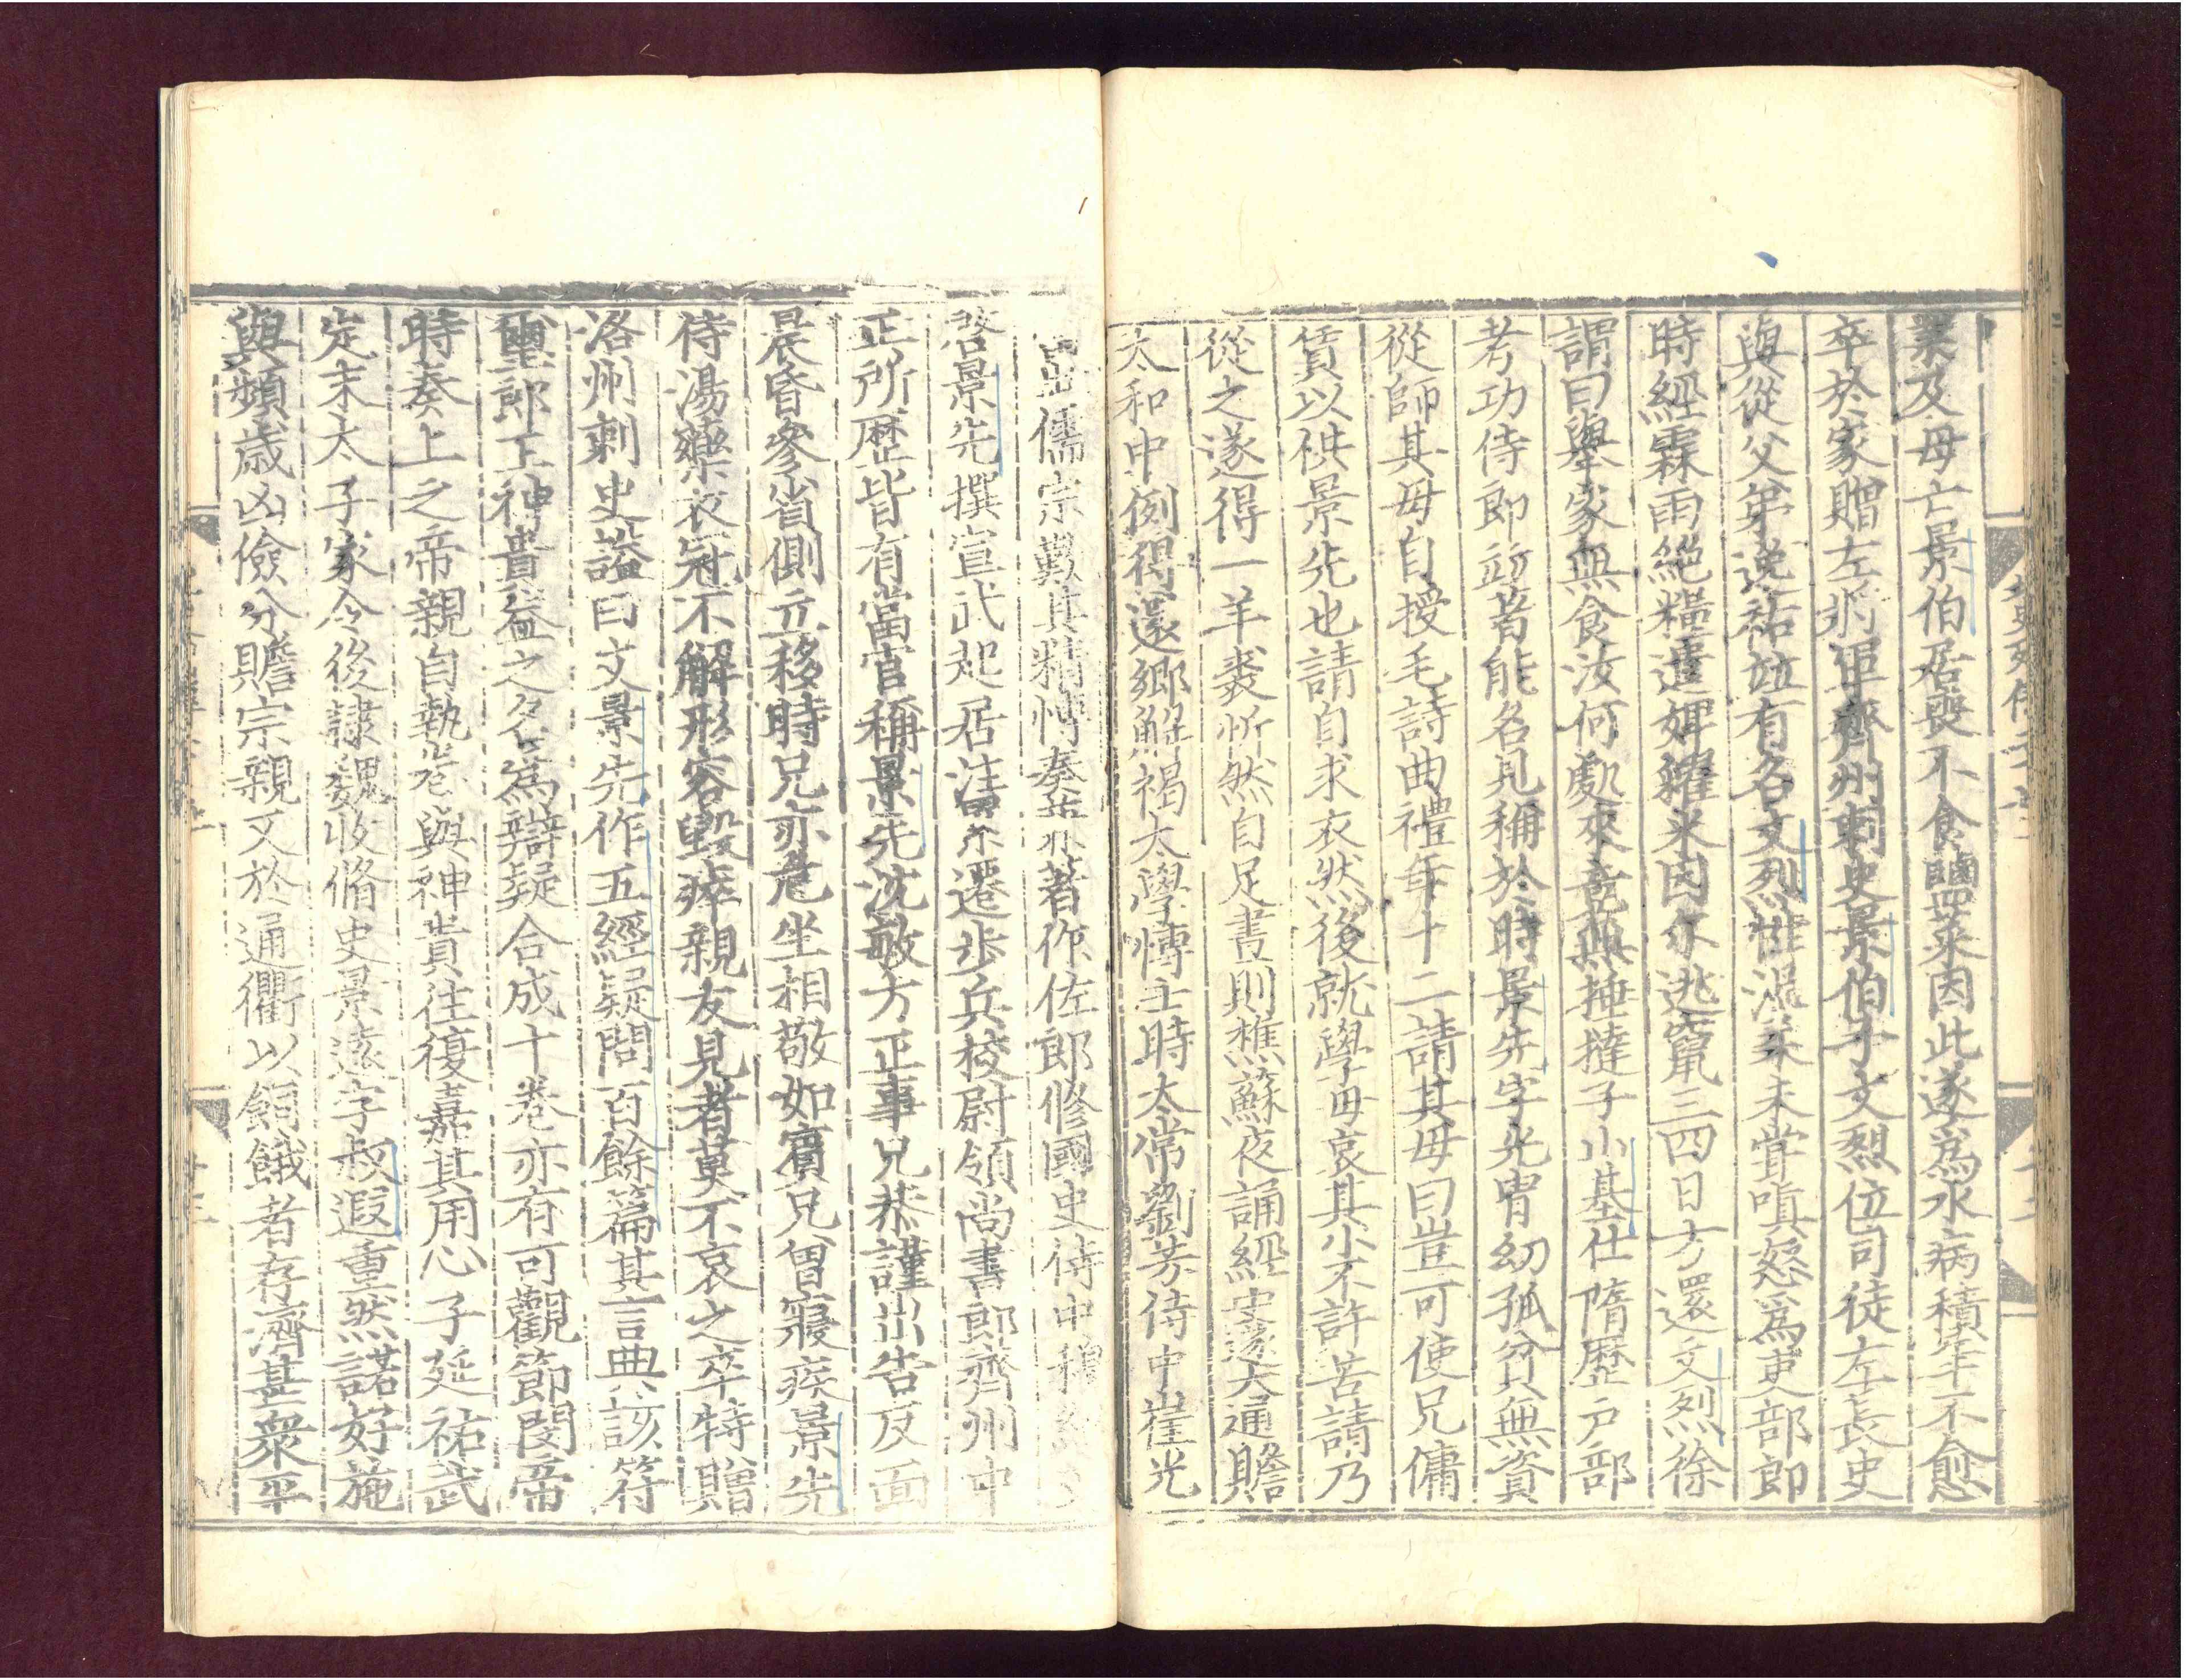 業及母亡景伯居喪不食鹽菜因此遂爲水病積年不愈
卒於家贈左將軍齊州刺史景伯子文烈位司徒左長史
與從父弟逸祐竝有名文烈性溫柔未嘗嗔怒爲吏部郎
時經霖雨絕糧遣婢糴米因尒逃竄三四日方還文烈徐
謂曰舉家無食汝何處來竟無捶撻子小基仕隋歷戶部
考功侍郎竝著能名見稱於時景先字光冑幼孤貧無資
從師其母自授毛詩曲禮年十二請其母曰豈可使兄傭
賃以供景先也請自求衣然後就學母哀其小不許苦請乃
從之遂得一羊裘忻然自足晝則樵蘇夜誦經史遂大通贍
太和中例得還鄉解褐太學博士時太常劉芳侍中崔光
儒宗歎其精博奏兼著作佐郎修國史侍中穆紹
啓景先撰宣武起居注累遷步兵校尉領尚書郎齊州中
正所歷皆有當官稱景先沈敏方正事兄恭謹出告反面
晨昏參省側立移時兄亦危坐相敬如賓兄曾寢疾景先
侍湯藥衣冠不解形容毀瘁親友見者莫不哀之卒特贈
洛州刺史謚曰文景先作五經疑問百餘篇其言典該符
璽郎王神貴益之名爲辯疑合成十卷亦有可觀節閔帝
時奏上之帝親自執卷與神貴往復嘉其用心子延祐武
定末太子家令後隷魏收脩史景遠字叔遐重然諾好施
與頻歲凶儉分贍宗親又於通衢以飼餓者存濟甚衆平